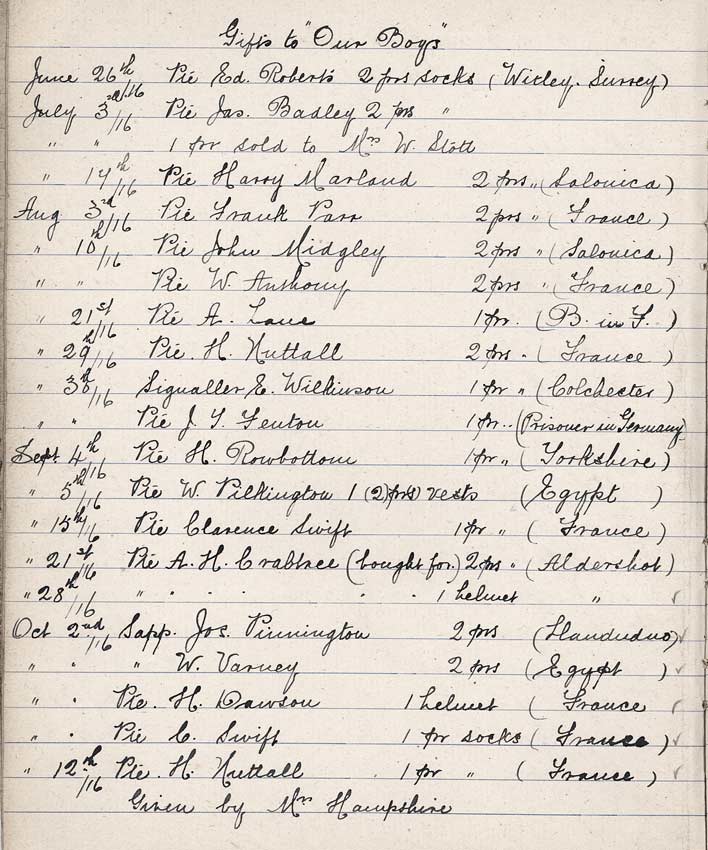 Gifts to "Our Boys"
June 26th/16 Pte Ed. Roberts 2 prs socks (Witley. Surrey)
July 3rd/16 Pte Jas. Badley 2 prs "
" " 1 pr sold to Mrs W. Stott
" 14th/16 Pte Harry Marland 2 prs " (Salonica)
Aug 3rd/16 Pte Frank Parr 2 prs " (France)
" 10th/16 Pte John Midgley 2 prs " (Salonica)
" " Pte W. Anthony 2 prs " (France)
" 21st/16 Pte A. Lane 1 pr. (B. in F.)
" 29th/16 Pte. H. Nuttall 2 prs " (France)
" 30th/16 Signaller E. Wilkinson 1 pr " (Colchester)
" " Pte J. T. Fenton 1 pr " (Prisoner in Germany)
Sept 4th/16 Pte H. Rowbottom 1 pr " (Yorkshire)
" 5th/16 Pte W. Pilkington 1 (2) prs vests (Egypt)
" 15th/16 Pte Clarence Swift 1 pr " (France)
" 21st/16 Pte A. H. Crabtree (bought for.) 2 prs " (Aldershot)
" 28th/16 " " " " " 1 helmet "
Oct 2nd/16 Sapp. Jos. Pinnington 2 prs (Llandudno)
" " " W. Varney 2 prs (Egypt)
" " Pte. H. Dawson 1 helmet (France
" " Pte C. Swift 1 pr socks (France)
" 12th/16 Pte. H. Nuttall 1 pr " (France)
Given by Mrs Hampshire